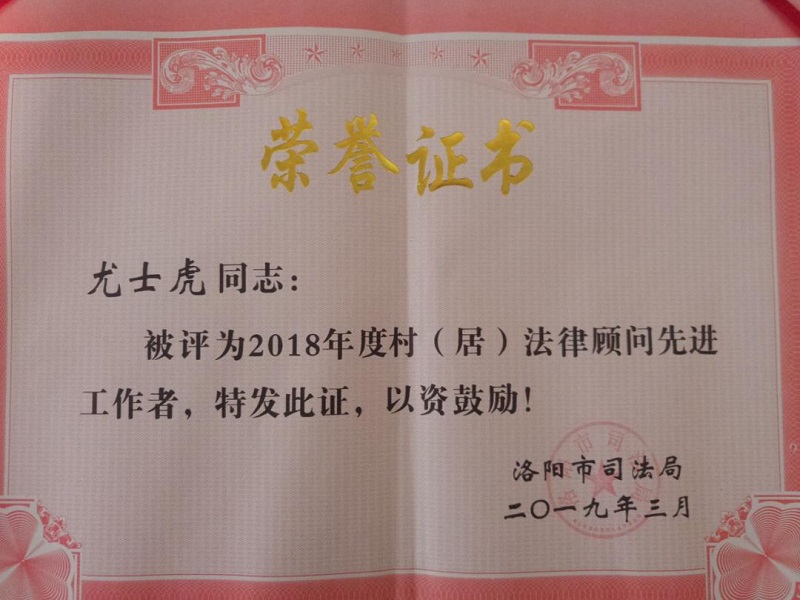 荣誉证书
尤士虎同志：
被评为2018年度村（居）法律顾问先进
工作者，特发此证，以资鼓励！
洛阳市司法局
二〇一九年三月